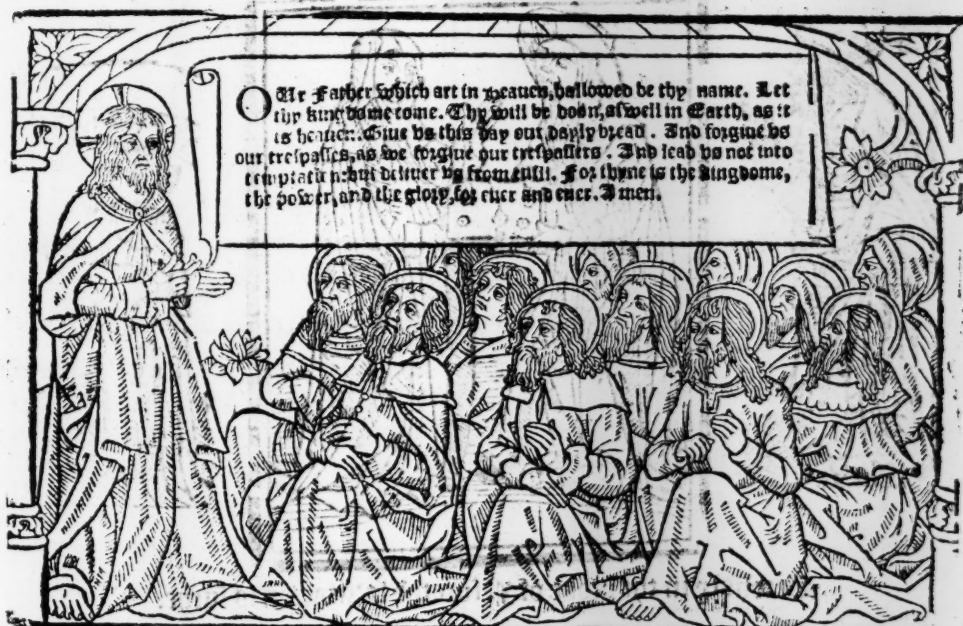 OUr Father which art in Heauen, hallowed be thy name. Let
thy kingdome come. Thy will be doon, aswell in Earth, as it
is heauen. Giue vs this day our dayly bread. And forgiue vs
our trespasses, as we forgiue our trespassers. And lead vs not into
temptation: but deliuer vs from euill. For thyne is the kingdome,
the power, and the glory, for euer and euer. Amen.